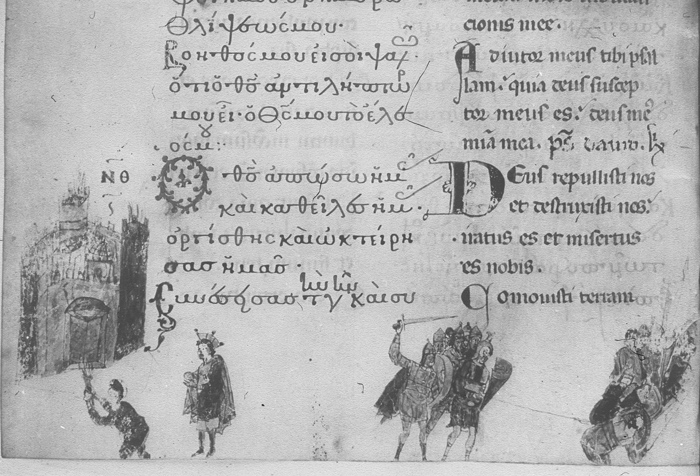 θλίψεώς μου·
Βοηθός μου εἶ σοὶ ψαλ
ὅτι ὁ θς ἀντιλήπτωρ
μου εἶ· ὁ θς μου τὸ ἔλε
ός μου:
ΝΘ
Ὁ θς ἀπώσω ἡμ
καὶ καθεῖλες ἡμ·
ὀργίσθης καὶ ὠκτείρη
σας ἡμᾶς
τὴν γῆν καὶ συ
cionis mee.
Adiutor meus tibi psal
lam. quia deus suscep
tor meus es. deus
mia mea. ps. dauid.
Deus repullisti nos
et destruxisti nos.
iratus es et misertus
es nobis.
Comouisti terram